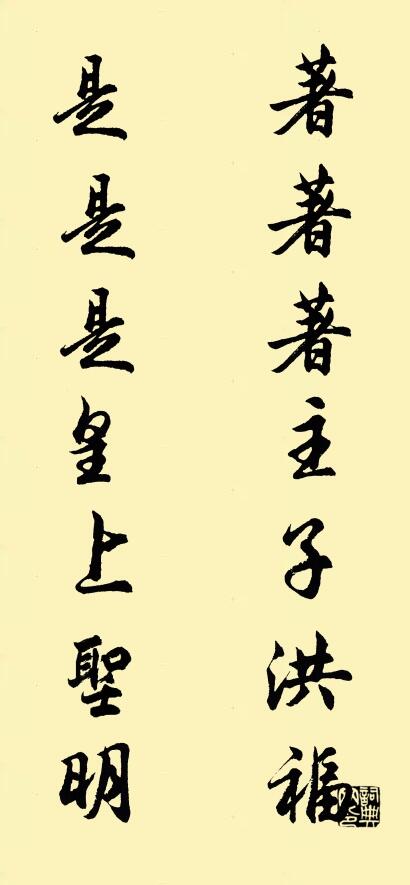 著著著主子洪福
是是是皇上聖明